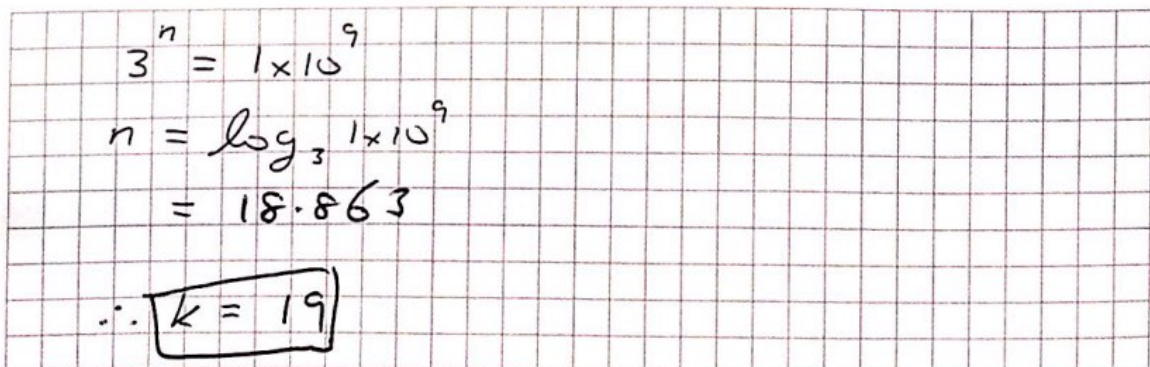 3ⁿ = 1×10⁹
n = log₃ 1×10⁹
= 18.863
∴ k = 19